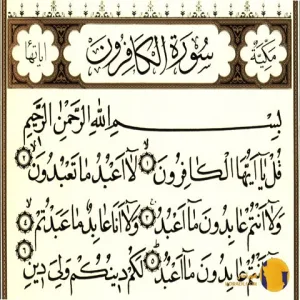 مكية سورة الكافرون آياتها
بسم الله الرحمن الرحيم
قل يا أيها الكافرون ۝ لا أعبد ما تعبدون ۝
ولا أنتم عابدون ما أعبد ۝ ولا أنا عابد ما عبدتم ۝
ولا أنتم عابدون ما أعبد ۝ لكم دينكم ولي دين